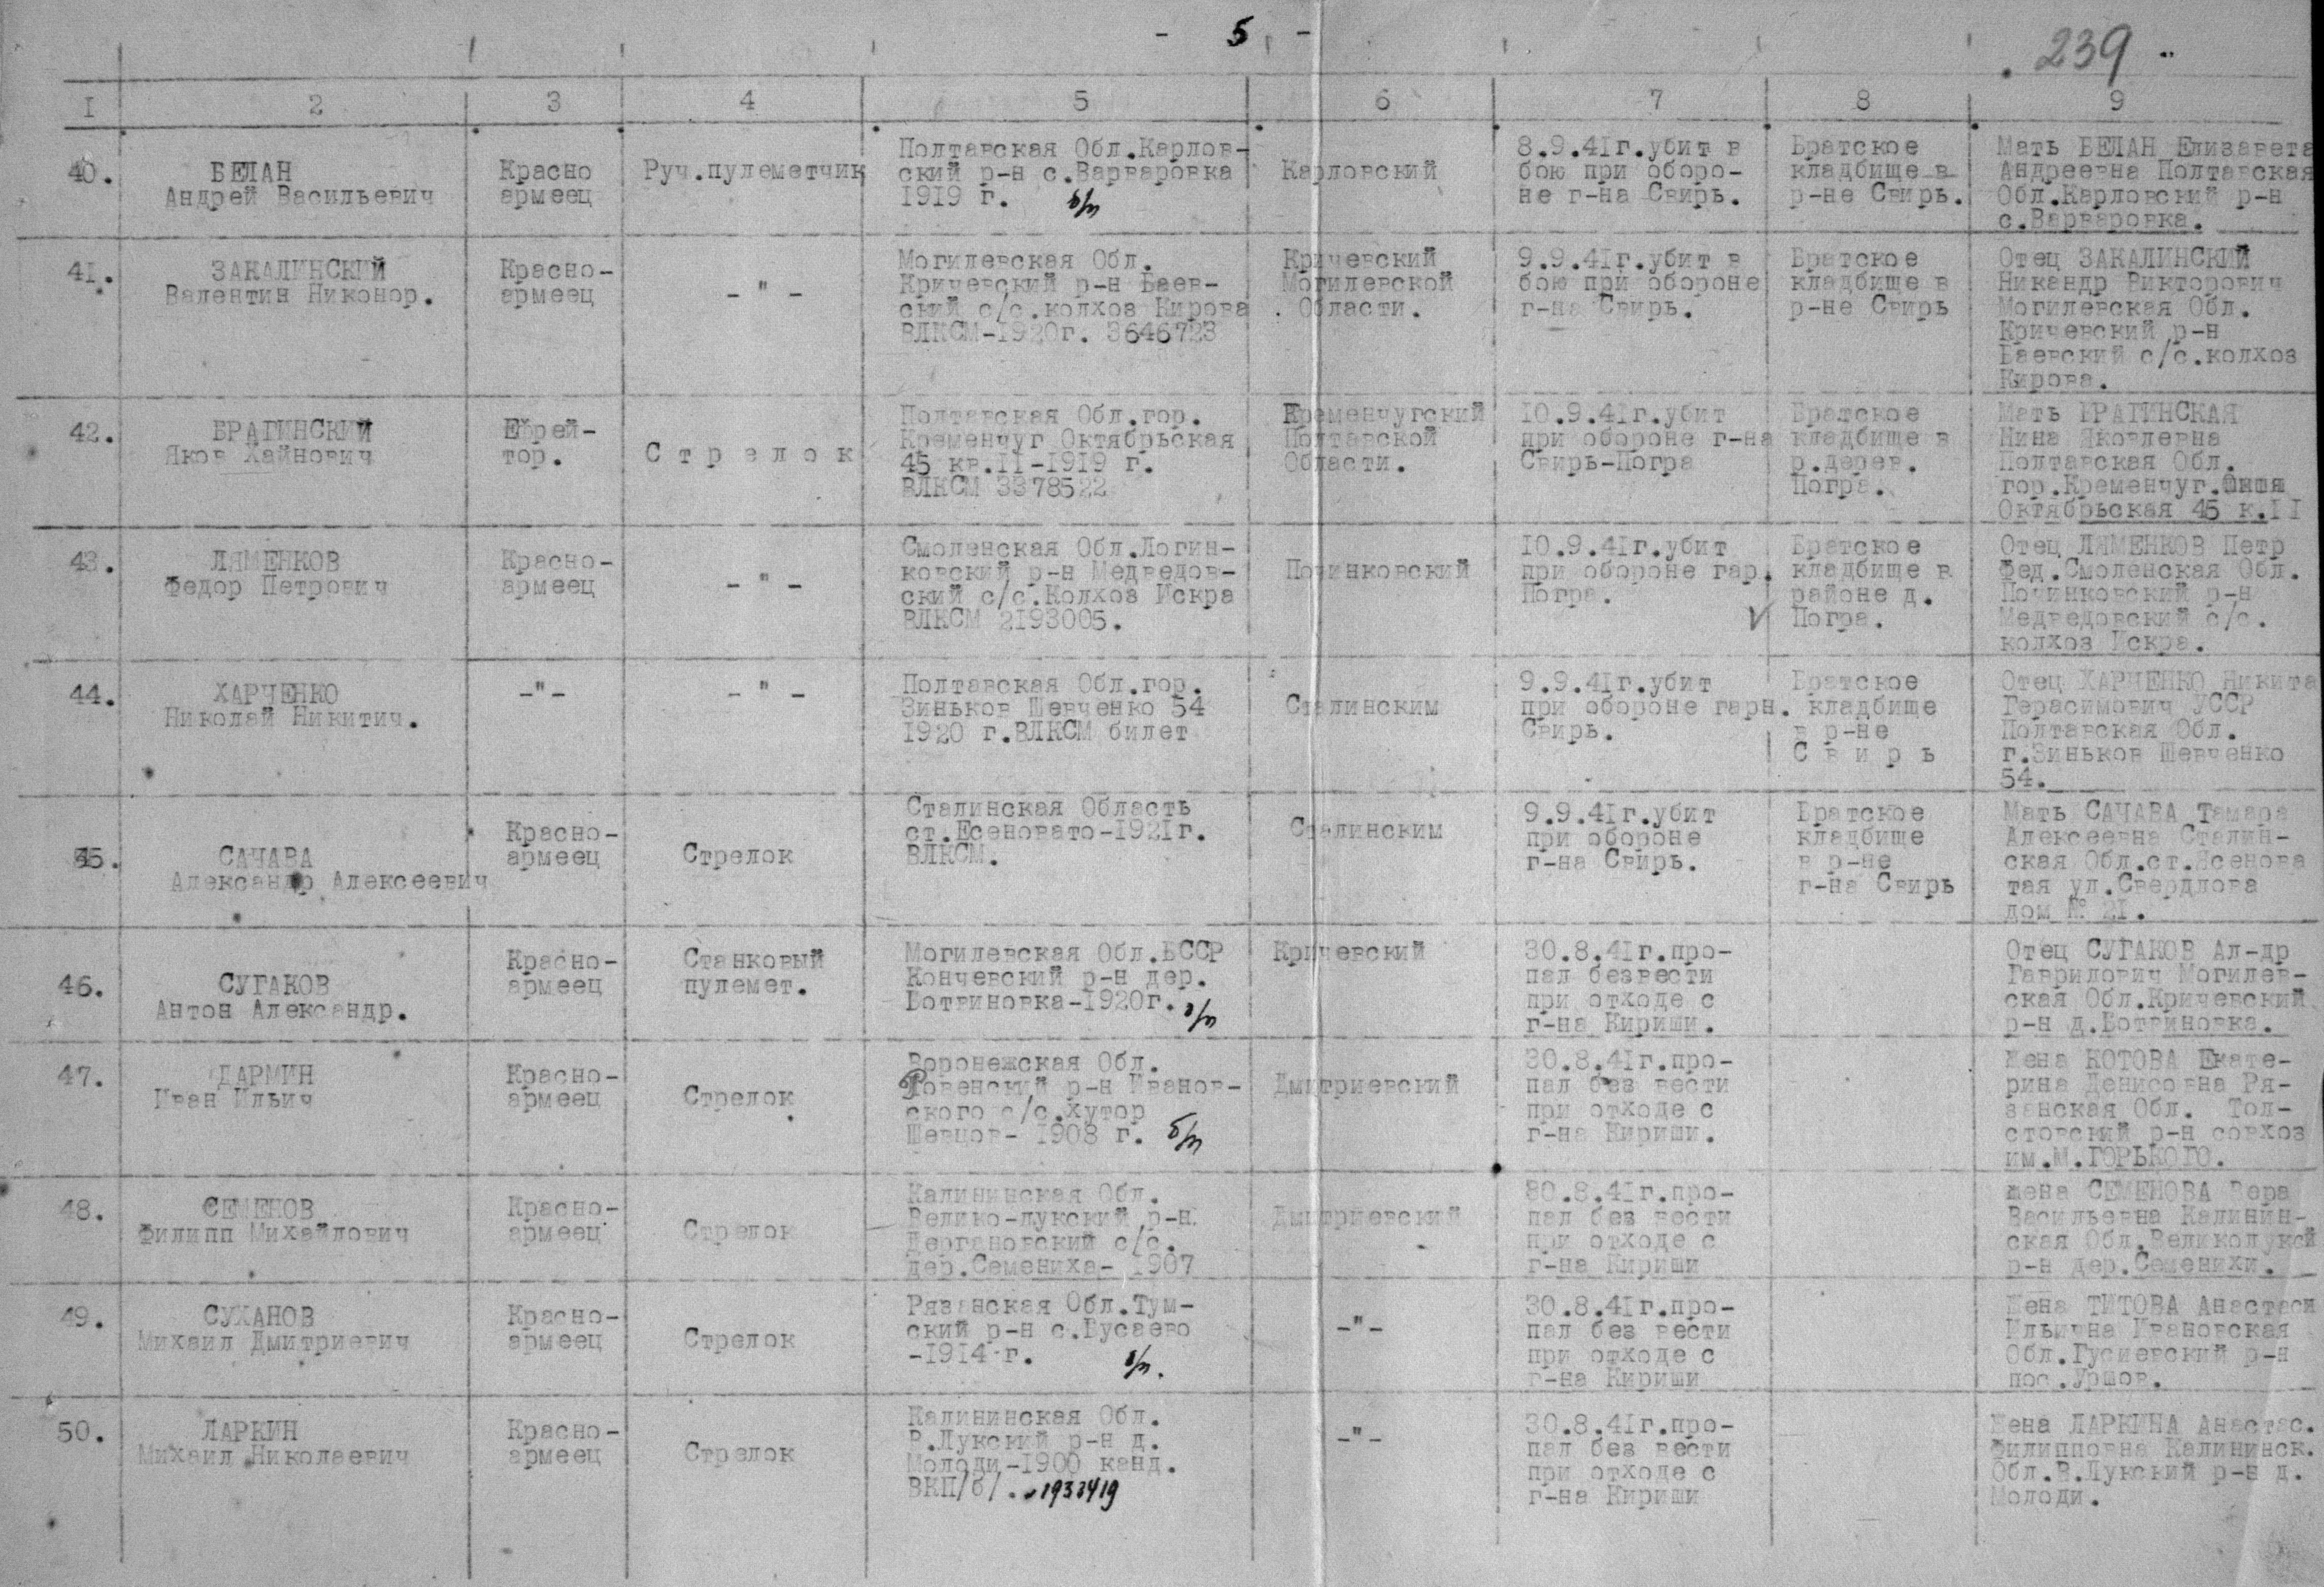 - 5 -
239
I 2 3 4 5 6 7 8 9
40.
БЕЛАН
Андрей Васильевич
Красно
армеец
Руч.пулеметчик
Полтавская Обл.Карлов-
ский р-н с.Варваровка
1919 г. б/п
Карловский
8.9.41г.убит в
бою при оборо-
не г-на Свирь.
Братское
кладбище в
р-не Свирь.
Мать БЕЛАН Елизавета
Андреевна Полтавская
Обл.Карловский р-н
с.Варваровка.
41.
ЗАКАЛИНСКИЙ
Валентин Никонор.
Красно-
армеец
- " -
Могилевская Обл.
Кричевский р-н Баев-
ский с/с.колхоз Кирова
ВЛКСМ-1920г. 3646723
Кричевский
Могилевской
Области.
9.9.41г.убит в
бою при обороне
г-на Свирь.
Братское
кладбище в
р-не Свирь
Отец ЗАКАЛИНСКИЙ
Никандр Викторович
Могилевская Обл.
Кричевский р-н
Баевский с/с.колхоз
Кирова.
42.
БРАГИНСКИЙ
Яков Хайнович
Ефрей-
тор.
С т р е л о к
Полтавская Обл.гор.
Кременчуг Октябрьская
45 кв.II-1919 г.
ВЛКСМ 3378522
Кременчугский
Полтавской
Области.
10.9.41г.убит
при обороне г-на
Свирь-Погра
Братское
кладбище в
р.дерев.
Погра.
Мать БРАГИНСКАЯ
Нина Яковлевна
Полтавская Обл.
гор.Кременчуг.
Октябрьская 45 к.II
43.
ЛЯМЕНКОВ
Федор Петрович
Красно-
армеец
- " -
Смоленская Обл.Логин-
ковский р-н Медведов-
ский с/с.Колхоз Искра
ВЛКСМ 2193005.
Починковский
10.9.41г.убит
при обороне гар.
Погра.
Братское
кладбище в
районе д.
Погра.
Отец ЛЯМЕНКОВ Петр
Фед.Смоленская Обл.
Починковский р-н
Медведовский с/с.
колхоз Искра.
44.
ХАРЧЕНКО
Николай Никитич.
-"-
- " -
Полтавская Обл.гор.
Зиньков Шевченко 54
1920 г.ВЛКСМ билет
Сталинским
9.9.41г.убит
при обороне гарн.
Свирь.
Братское
кладбище
в р-не
С в и р ь
Отец ХАРЧЕНКО Никита
Герасимович УССР
Полтавская Обл.
г.Зиньков Шевченко
54.
45.
САЧАВА
Александр Алексеевич
Красно-
армеец
Стрелок
Сталинская Область
ст.Есеновато-1921г.
ВЛКСМ.
Сталинским
9.9.41г.убит
при обороне
г-на Свирь.
Братское
кладбище
в р-не
г-на Свирь
Мать САЧАВА Тамара
Алексеевна Сталин-
ская Обл.ст.Ясенова
тая ул.Свердлова
дом № 21.
46.
СУГАКОВ
Антон Александр.
Красно-
армеец
Станковый
пулемет.
Могилевская Обл.БССР
Кончевский р-н дер.
Ботвиновка-1920г. б/п
Кричевский
30.8.41г.про-
пал безвести
при отходе с
г-на Кириши.
Отец СУГАКОВ Ал-др
Гаврилович Могилев-
ская Обл.Кричевский
р-н д.Ботвиновка.
47.
ДАРМИН
Иван Ильич
Красно-
армеец
Стрелок
Воронежская Обл.
Ровенский р-н Иванов-
ского с/с.хутор
Шевцов- 1908 г. б/п
Дмитриевский
30.8.41г.про-
пал без вести
при отходе с
г-на Кириши.
Жена КОТОВА Екате-
рина Денисовна Ря-
занская Обл. Тол-
стовский р-н совхоз
им.М.ГОРЬКОГО.
48.
СЕМЕНОВ
Филипп Михайлович
Красно-
армеец
Стрелок
Калининская Обл.
Велико-лукский р-н.
Дергановский с/с.
дер.Семениха- 1907
Дмитриевский
30.8.41г.про-
пал без вести
при отходе с
г-на Кириши
жена СЕМЕНОВА Вера
Васильевна Калинин-
ская Обл.Великолукай
р-н дер.Семенихи.
49.
СУХАНОВ
Михаил Дмитриевич
Красно-
армеец
Стрелок
Рязанская Обл.Тум-
ский р-н с.Бусаево
-1914 г. б/п.
-"-
30.8.41г.про-
пал без вести
при отходе с
г-на Кириши
Жена ТИТОВА Анастаси
Ильична Ивановская
Обл.Гусиевский р-н
пос.Уршов.
50.
ЛАРКИН
Михаил Николаевич
Красно-
армеец
Стрелок
Калининская Обл.
В.Лукский р-н д.
Молоди-1900 канд.
ВКП/б/. 1933419
-"-
30.8.41г.про-
пал без вести
при отходе с
г-на Кириши
Жена ЛАРКИНА Анастас.
Филипповна Калининск.
Обл.В.Лукский р-н д.
Молоди.